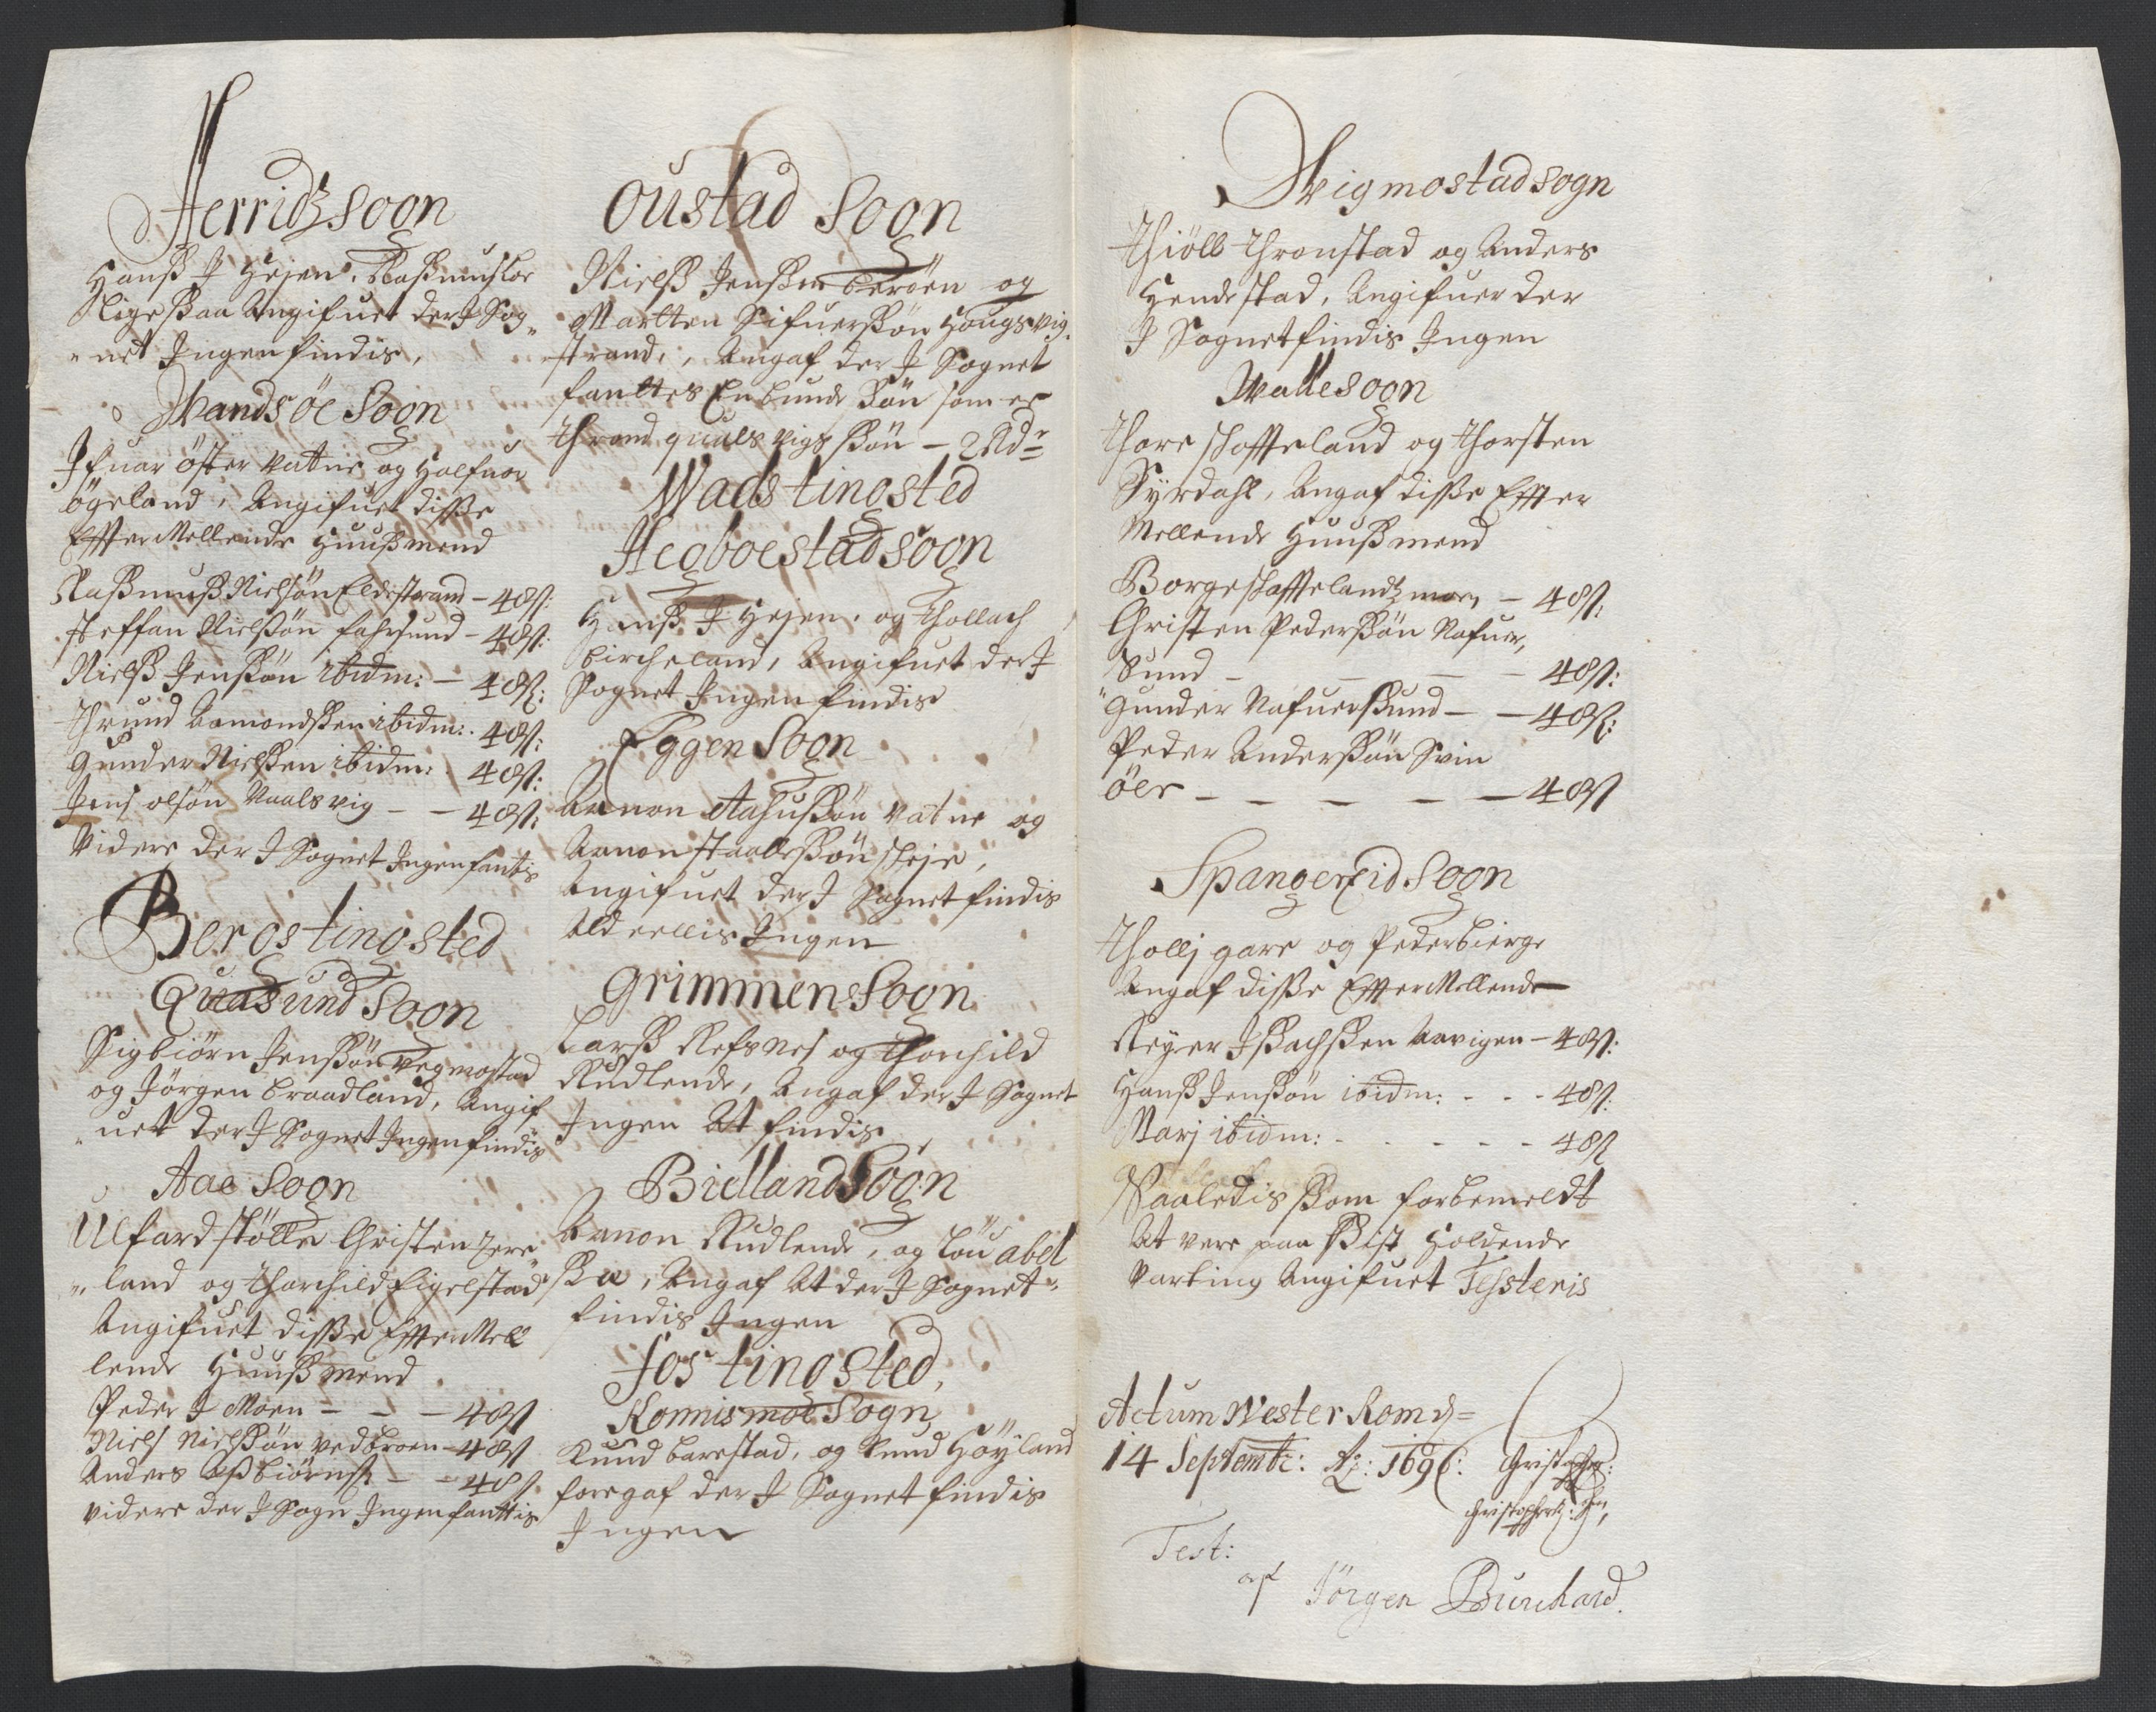 Herridz Sogn
Hanß I Hejen, Raßmus Loe
Ligesaa Angifuet der I Sog¸
net Ingen findis,
Wandsøe Sogn
Ifuar öster Vatne og Halfuor
ögeland, Angifuet disse
EffterMellende Huußmend
Raßmuß Nielsön Eldestrand – 48ß:
Steffan Nielßön fahrsund – 48ß:
Nielß Jenßön ibidm: – 48ß:
Thrund Aamondßen ibidm: 48ß:
Gunder Nielßen ibidm: 48ß:
Jens olsön Naalsvig – – 48ß:
Videre der I Sognet Ingen fantis
Bergs tingsted
Quaasund Sogn
Sigbiörn Jenßön Vegmostad
og Jörgen braadland, Angif
uet der I Sognet Ingen findis
Aae Sogn
Ulfard Stölle Christen
land og Thorchild Eigelstad
Angifuet disse EffterMel
lende Huußmend
Peder I Moen – – – 48ß
Niels Nielßön vedbroen – 48ß
Anders Aßbiörnß – – 48ß
videre der I Sogn Ingen fanttis
Oustad Sogn
Nielß Jenßen Beröen og
Martten Sifuerßön Hougsvig
strand, Angaf der I Sognet
fanttes En bunde Sön som er
Thrond qualsvigs Sön – 2 Rdr
Wads tingsted
Hegboestad Sogn
Hanß I Hejen, og Thollach
bircheland, Angifuet der I
Sognet Ingen findis
Eggen Sogn
Aanon Aasußön Vatne og
Aanon Staalßön Skeje,
Angifuet der I Sognet findis
Alderellis Ingen
Grimmen Sogn
Larß Refsnes og Thorchild
Rudlende, Angaf der I Sognet
Ingen At findis
Bielland Sogn
Aanon Rudlende, og Lou abel
ßæ, Angaf At der I Sognet
findis Ingen
Fos tingsted,
Konnismoe Sogn
Knud barestad, og Knud Höyland
foregaf der I Sognet findis
Ingen
Svigmostad sogn
Thiöll Thronstad og Anders
Hendestad, Angifuer der
I Sognet findis Ingen
Walle Sogn
Thore Skoffteland og Thorsten
Syrdahl, Angaf disse Effter
Mellende Huußmend
Borge skofftelandz moen – 48ß:
Christen Pederßön Nafuer,
Sund – – – – 48ß:
Gunder Nafuerßund – – 48ß:
Peder Anderßön Svin
öer – – – – – 48ß
Spangereid Sogn
Thollj gare og Peder bierge
Angaf disse EffterMellende
Reyer Ißachßen Aavigen – 48ß:
Hanß Jenßön ibidm: - - - 48ß:
Marj ibidm: - - - - - 48ß
Saaledis ßom forbemeldt
At vere paa Sist Holdende
Varting Angifuet Testeris
Actum Vester Rom d=
14 Septembr: Ao: 1696: Christopher:
Christophersz:
Test:
af Jörgen Burchard.